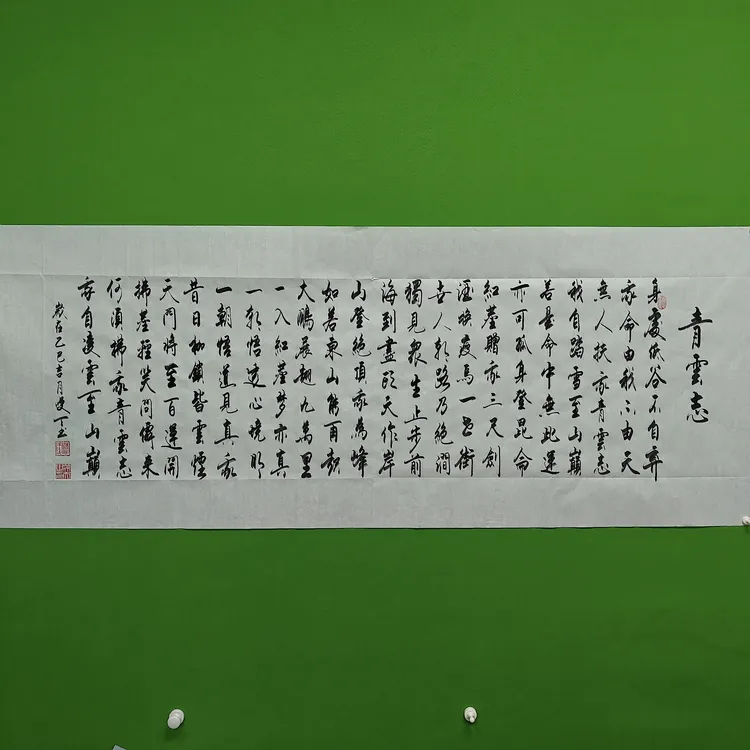 青雲志
身處低谷不自弃
我命由我不由天
無人扶我青雲志
我自踏雪至山巔
若是命中無此運
亦可孤身登昆侖
紅塵贈我三尺劍
酒換瘦馬一世街
世人朝路乃絕澗
獨見眾生止步前
海到盡頭天作岸
山登絕頂我為峰
如若東山能再起
大鵬展翅九萬里
一入紅塵夢亦真
一朝悟透心境明
一朝悟道見真我
昔日枷鎖皆雲煙
天門將至百運開
拂塵輕笑問儒來
何須掃我青雲志
我自凌雲至山巔
歲在乙巳吉月